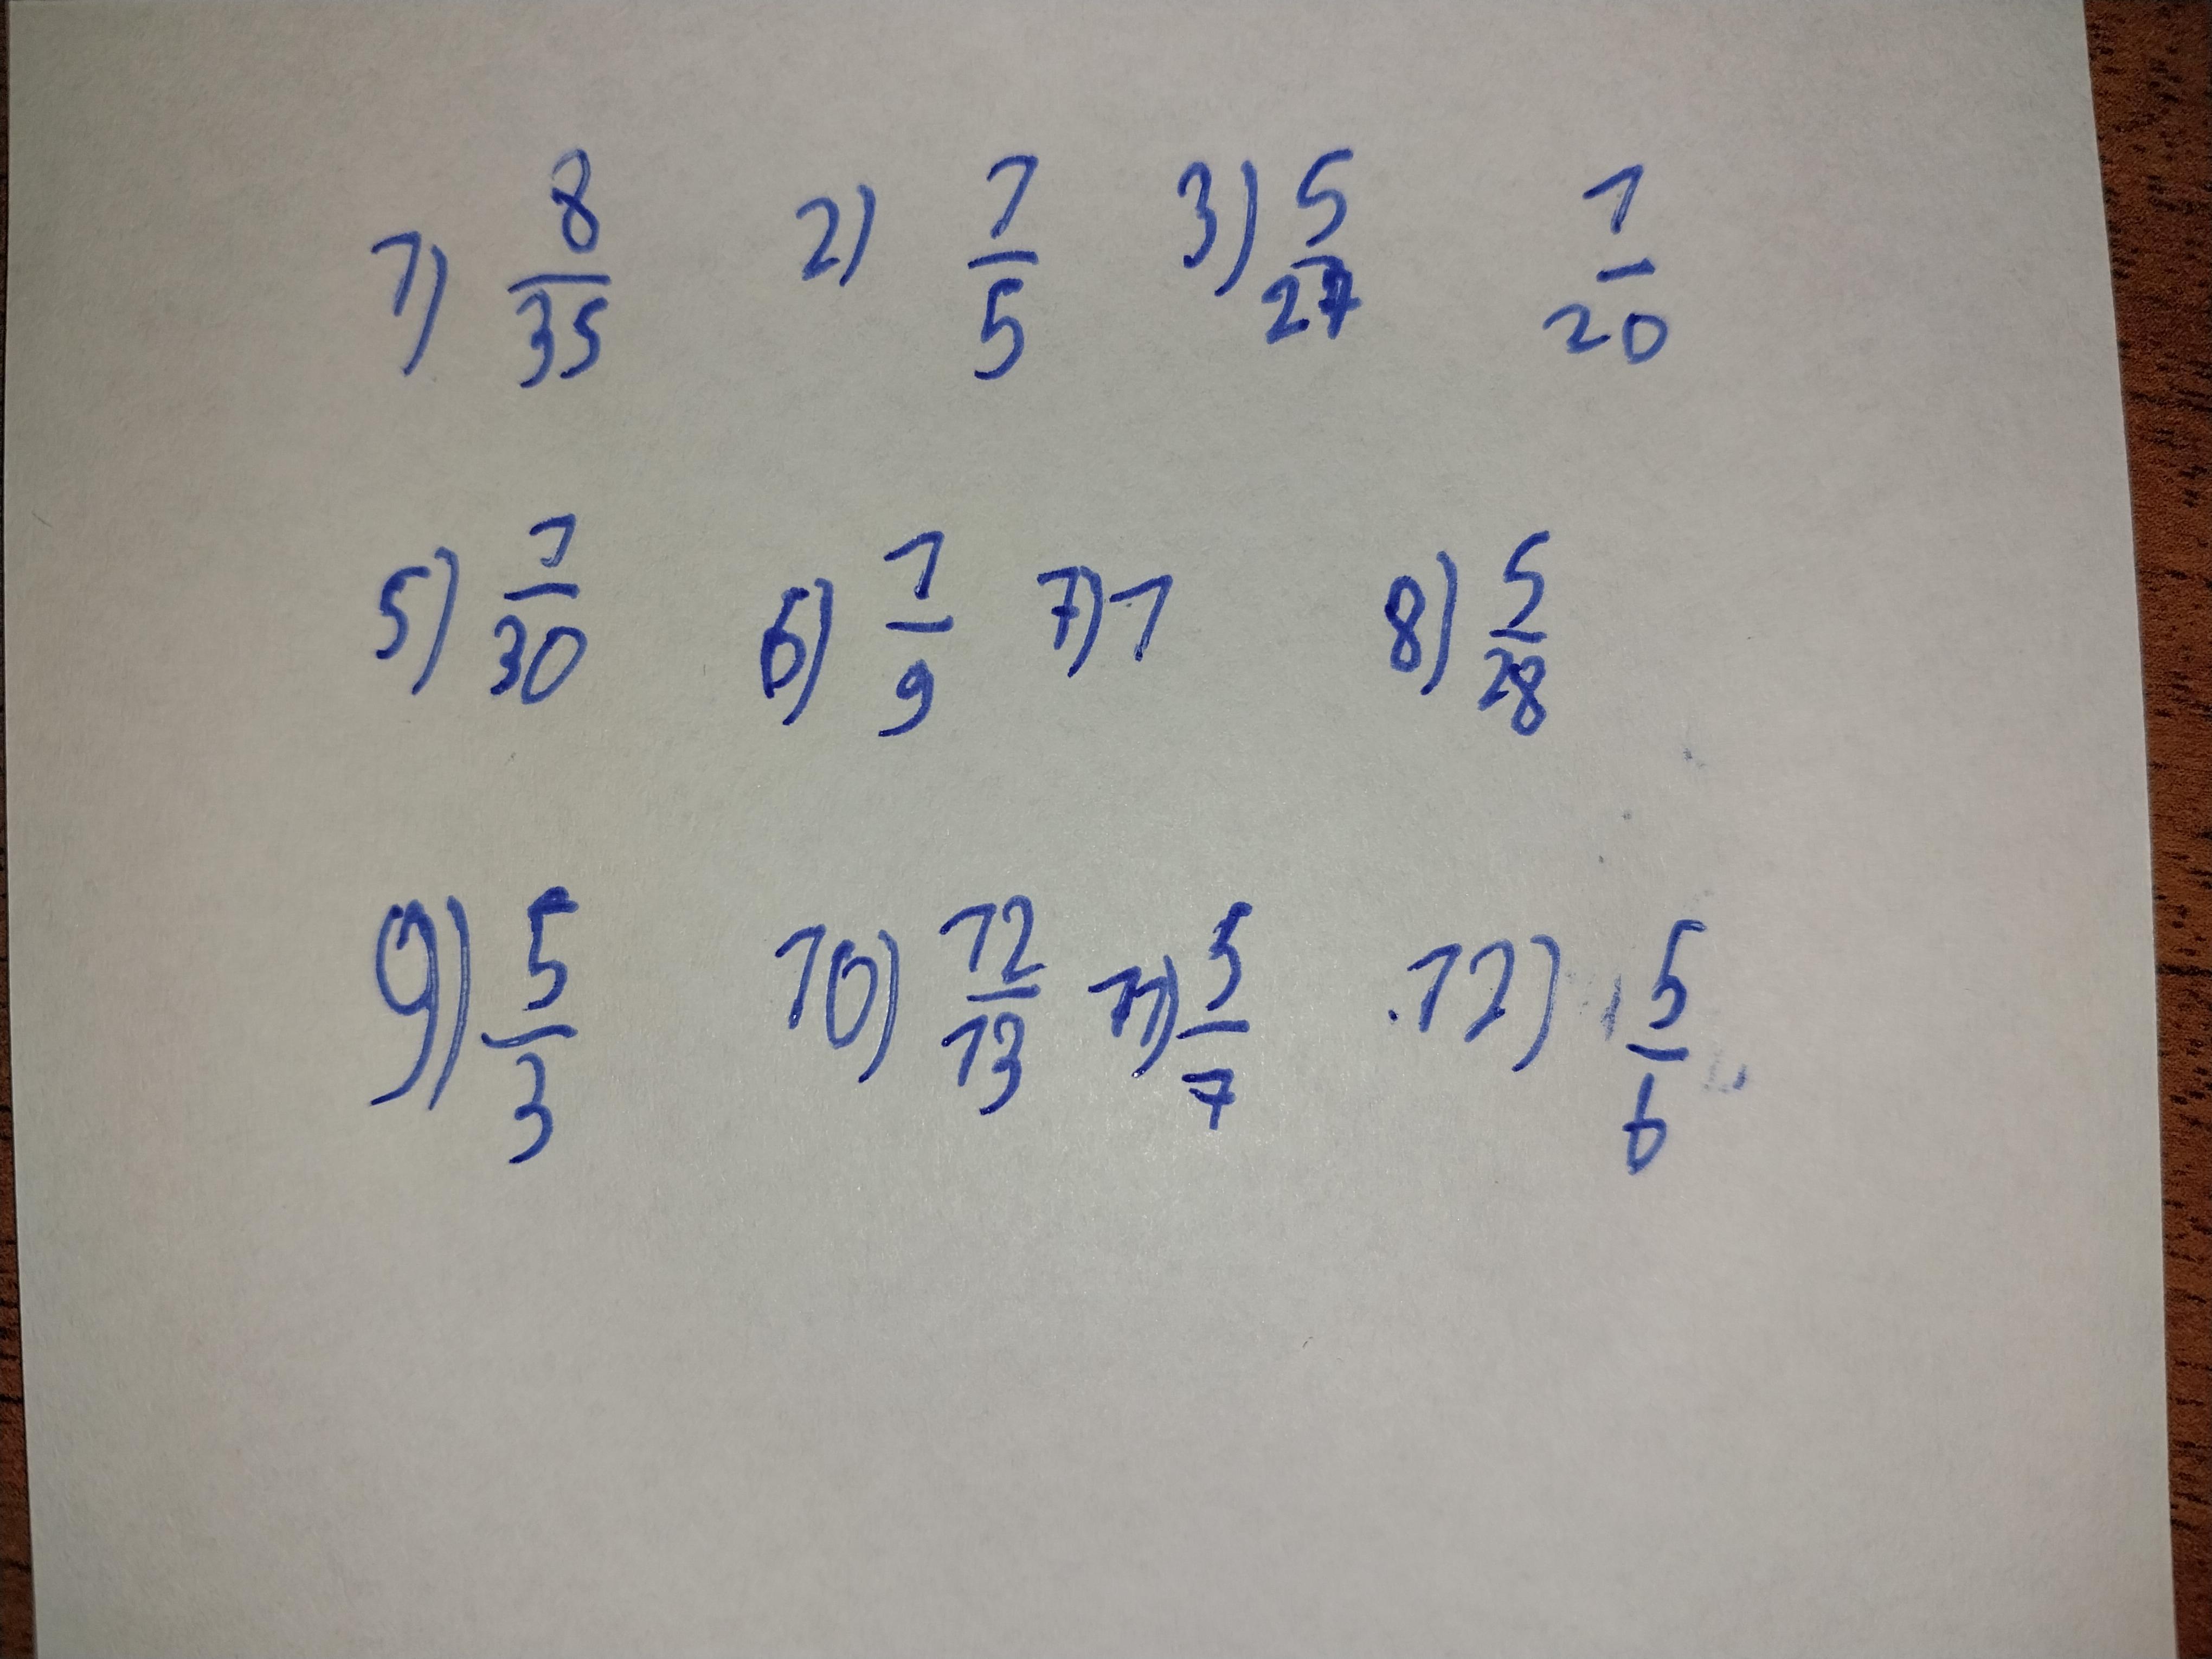 1) 8/35 2) 1/5 3) 5/27 1/20
5) 1/30 6) 1/9 7) 1 8) 5/28
9) 5/3 10) 12/13 11) 5/7 12) 5/6